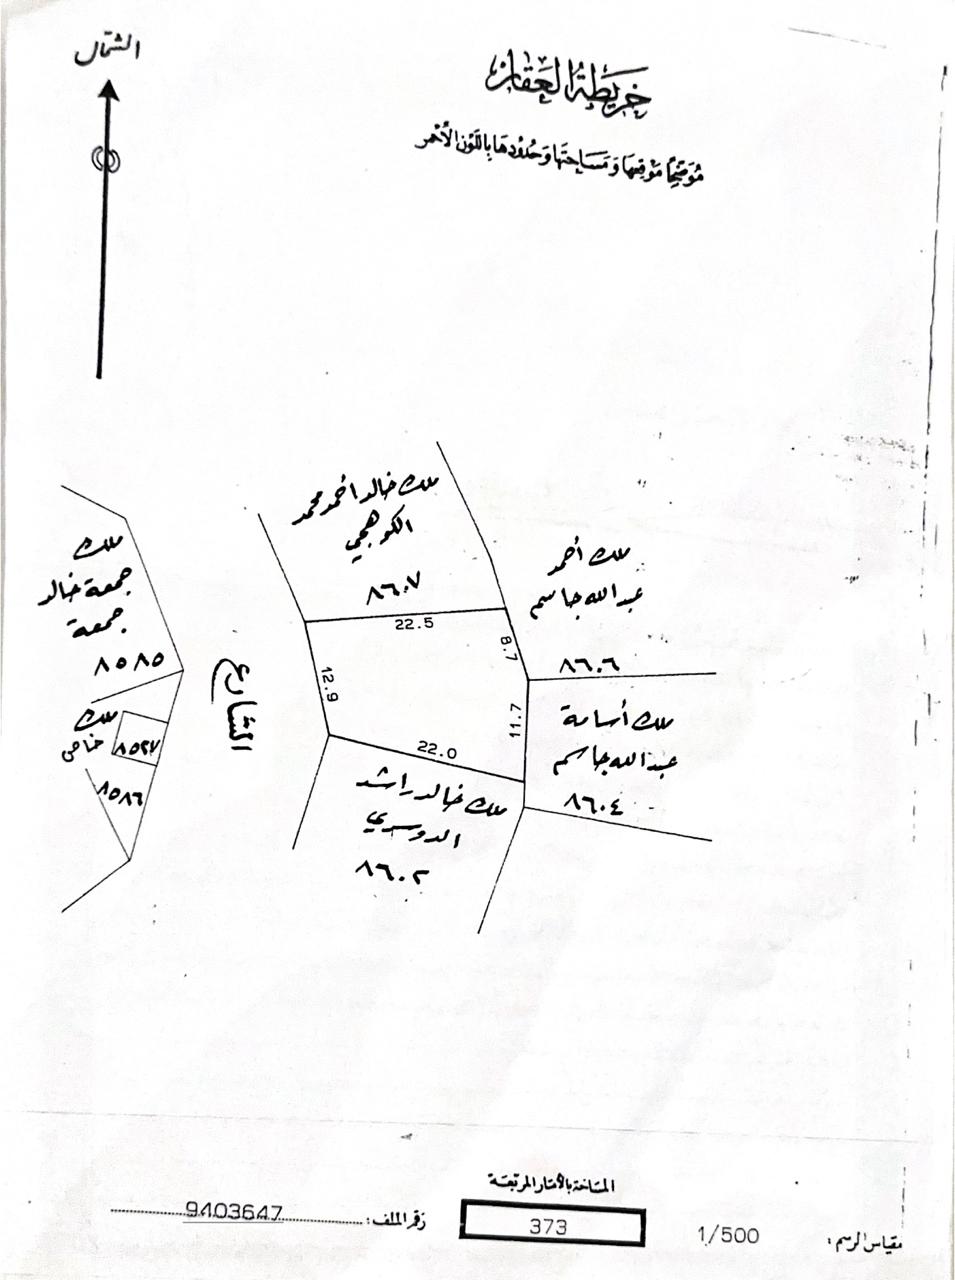 الشمال
خريطة العقار
موضحًا موقعها ومساحتها وحدودها باللون الأحمر
ملك خالد أحمد محمد
الكوهجي
٨٦٠٧
ملك أحمد
عبدالله جاسم
٨٦٠٦
ملك
جمعة خالد
جمعة
٨٥٨٥
22.5
8.7
12.9
الشارع
11.7
ملك أسامة
عبدالله جاسم
٨٦٠٤
ملك
خاص
٨٥٢٧
٨٥٨٦
22.0
ملك خالد راشد
الدوسري
٨٦٠٢
المساحة بالأمتار المربعة
مقياس الرسم: 1/500
373
رقم الملف: 9403647